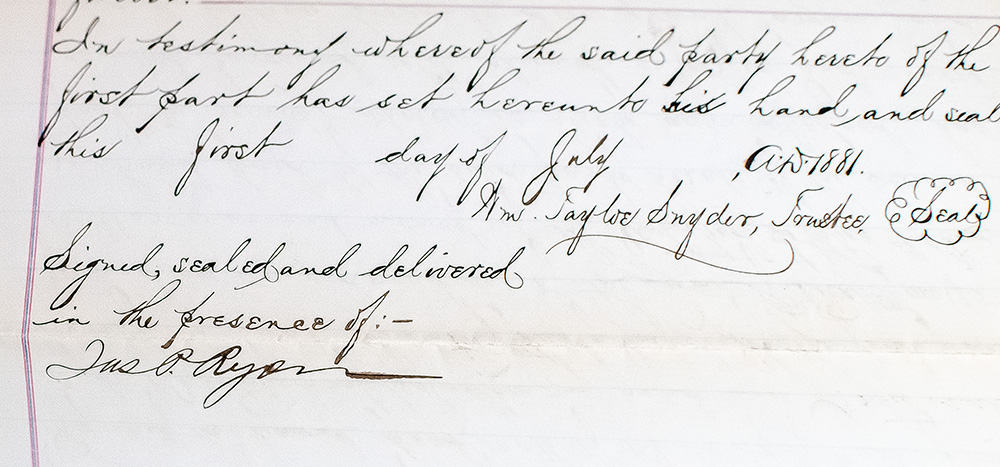 In testimony whereof the said party hereto of the
first part has set hereunto his hand, and seal
this first day of July, A.D. 1881.
Wm. Tayloe Snyder, Trustee. Seal
Signed, sealed and delivered
in the presence of:—
Jas P. Ryon